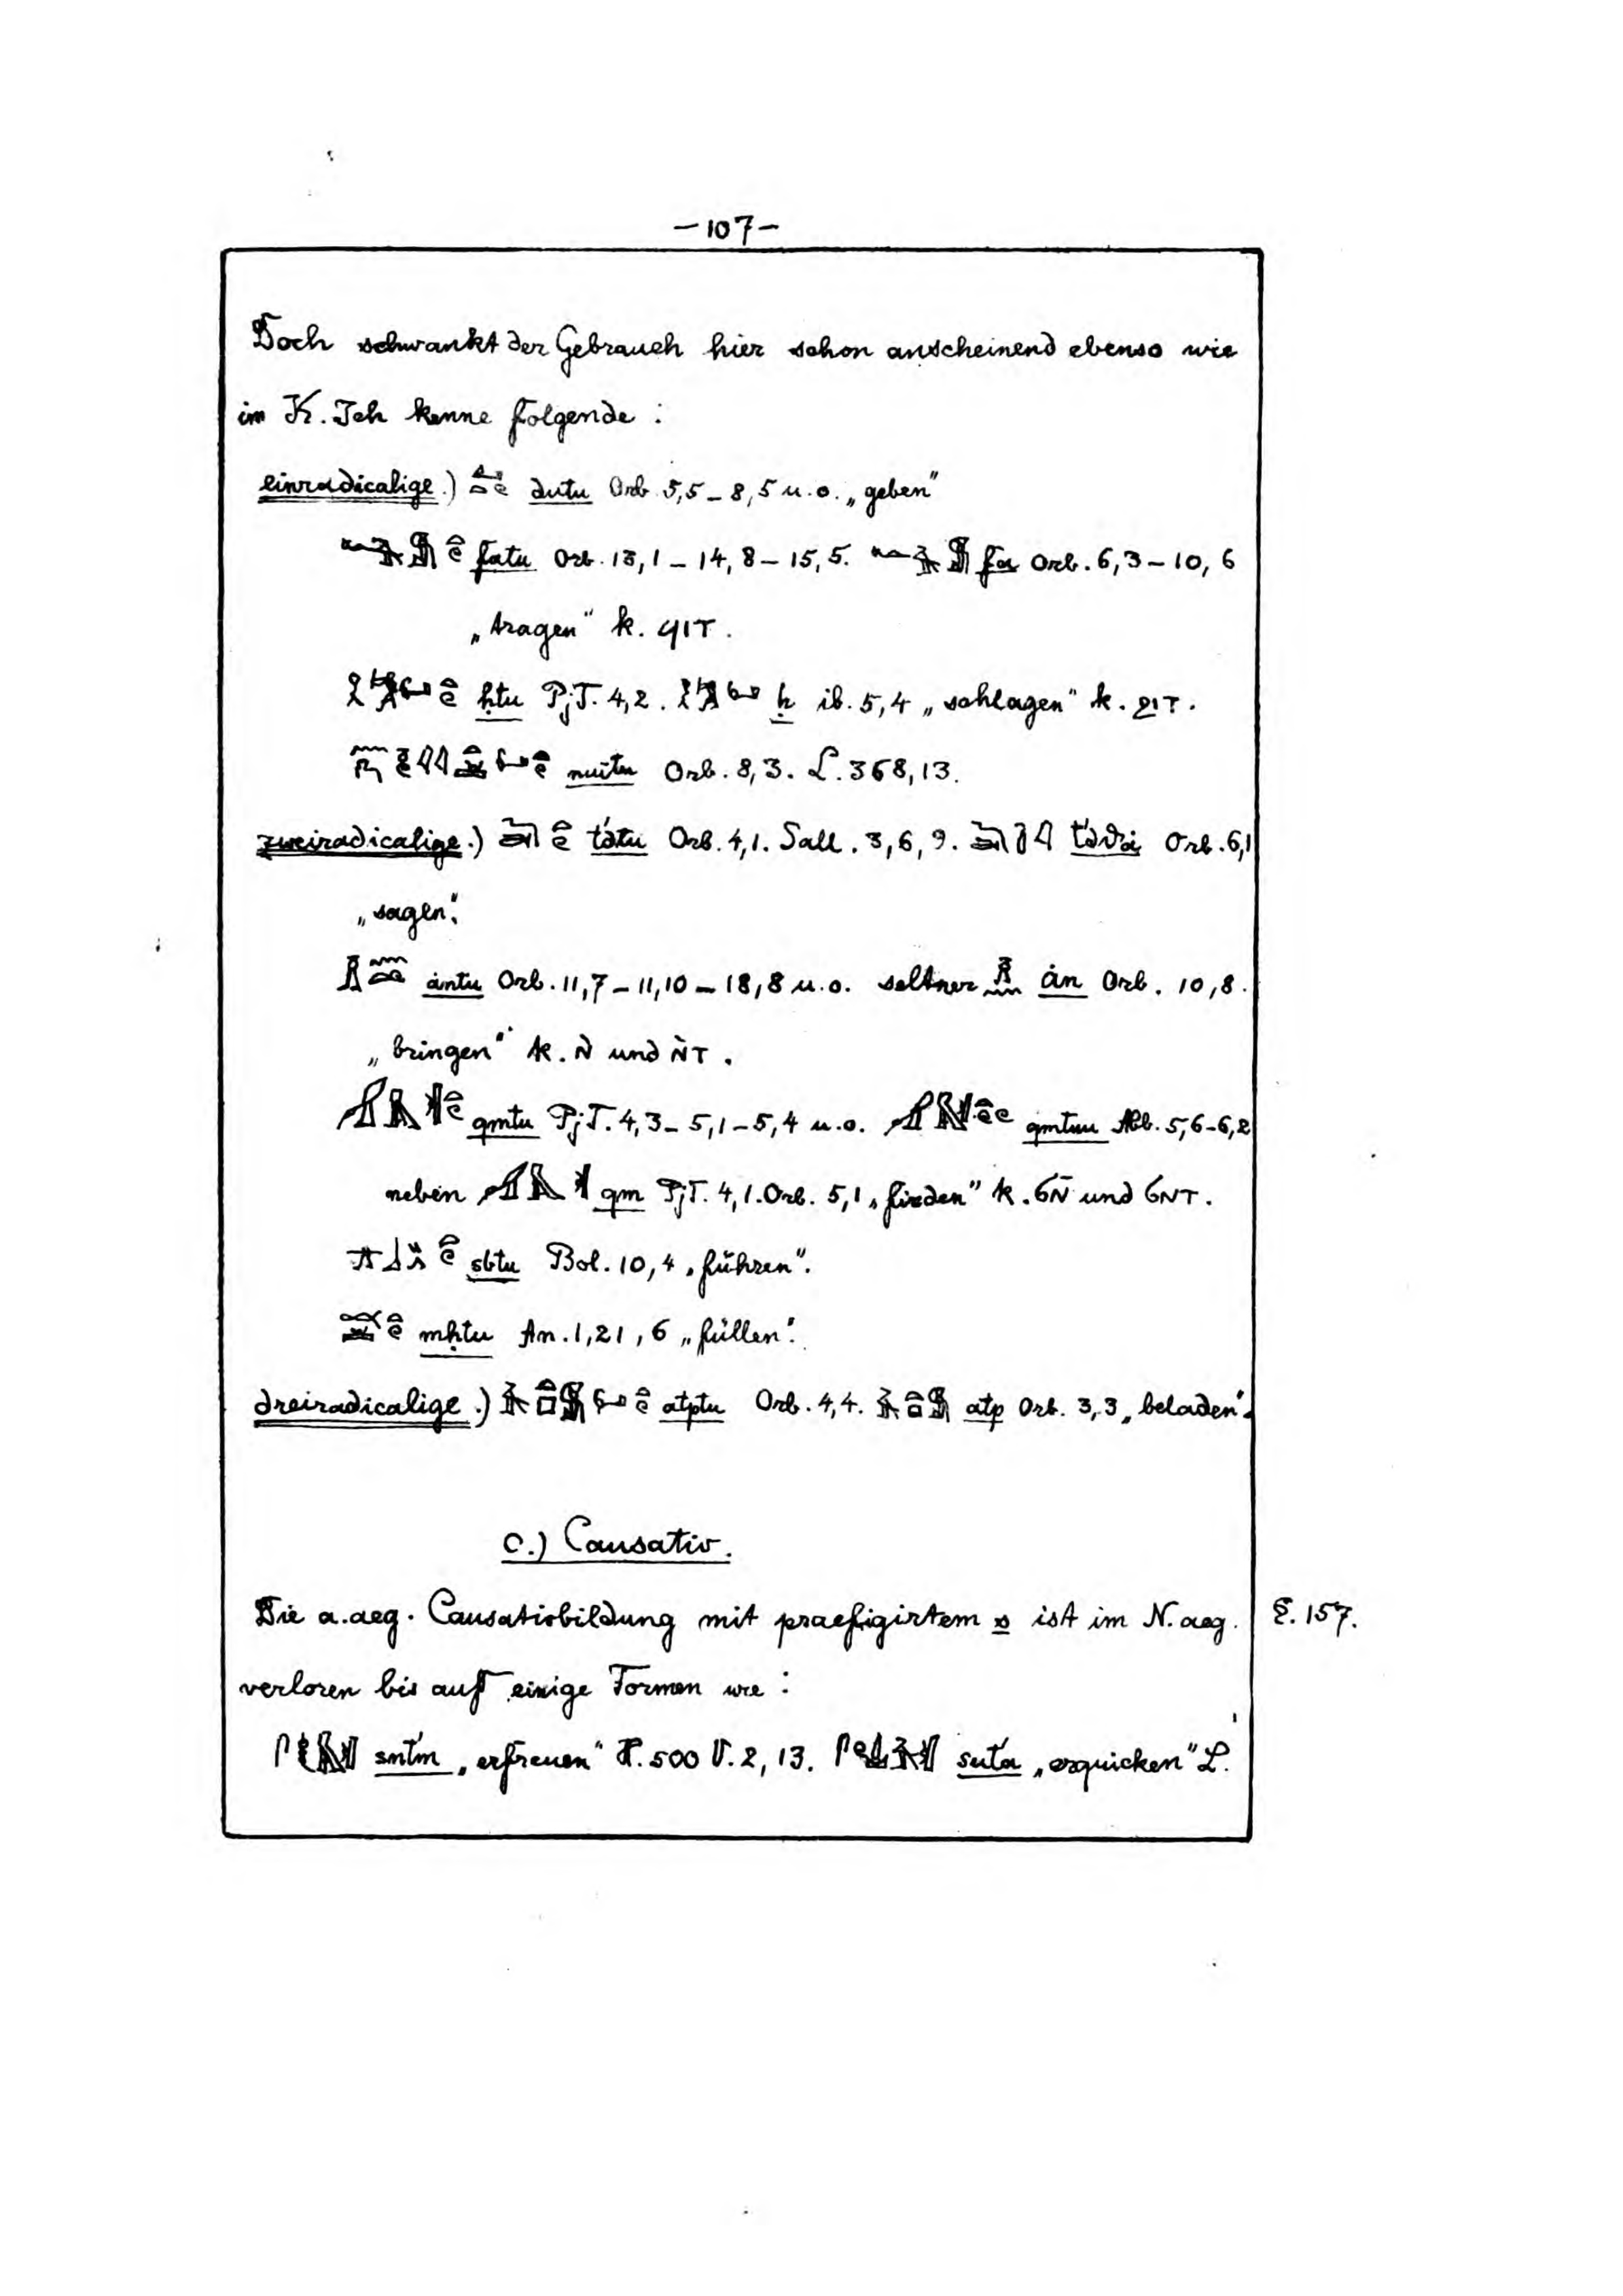 —107—
Doch schwankt der Gebrauch hier schon anscheinend ebenso wie
im K. Ich kenne folgende :
einradicalige.) dutu Orb. 5,5 – 8,5 u.o. „geben"
fatu Orb. 13,1 – 14,8 – 15,5. fa Orb. 6,3 – 10,6
„tragen" k. ϥⲓⲧ.
ḥtu PjT. 4,2. ḥ ib. 5,4 „schlagen" k. ϩⲓⲧ.
nuitu Orb. 8,3. L. 368,13.
zweiradicalige.) Orb. 4,1. Sall. 3,6,9. Orb. 6,1
„sagen".
ȧntu Orb. 11,7 – 11,10 – 18,8 u.o. seltner ȧn Orb. 10,8.
„bringen" k. ⲛ̀ und ⲛ̀ⲧ.
qmtu PjT. 4,3 – 5,1 – 5,4 u.o. qmtuu Abb. 5,6-6,2
neben qm PjT. 4,1. Orb. 5,1 „finden" k. ϭⲛ̄ und ϭⲛⲧ.
sbtu Bol. 10,4 „führen".
mḥtu An. 1,21,6 „füllen".
dreiradicalige.) atptu Orb. 4,4. atp Orb. 3,3 „beladen".
c.) Causativ.
Die a.aeg. Causativbildung mit praefigirtem s ist im N.aeg. §. 157.
verloren bis auf einige Formen wie :
snt́m „erfreuen" H. 500 V. 2,13. sut́a „erquicken" L.